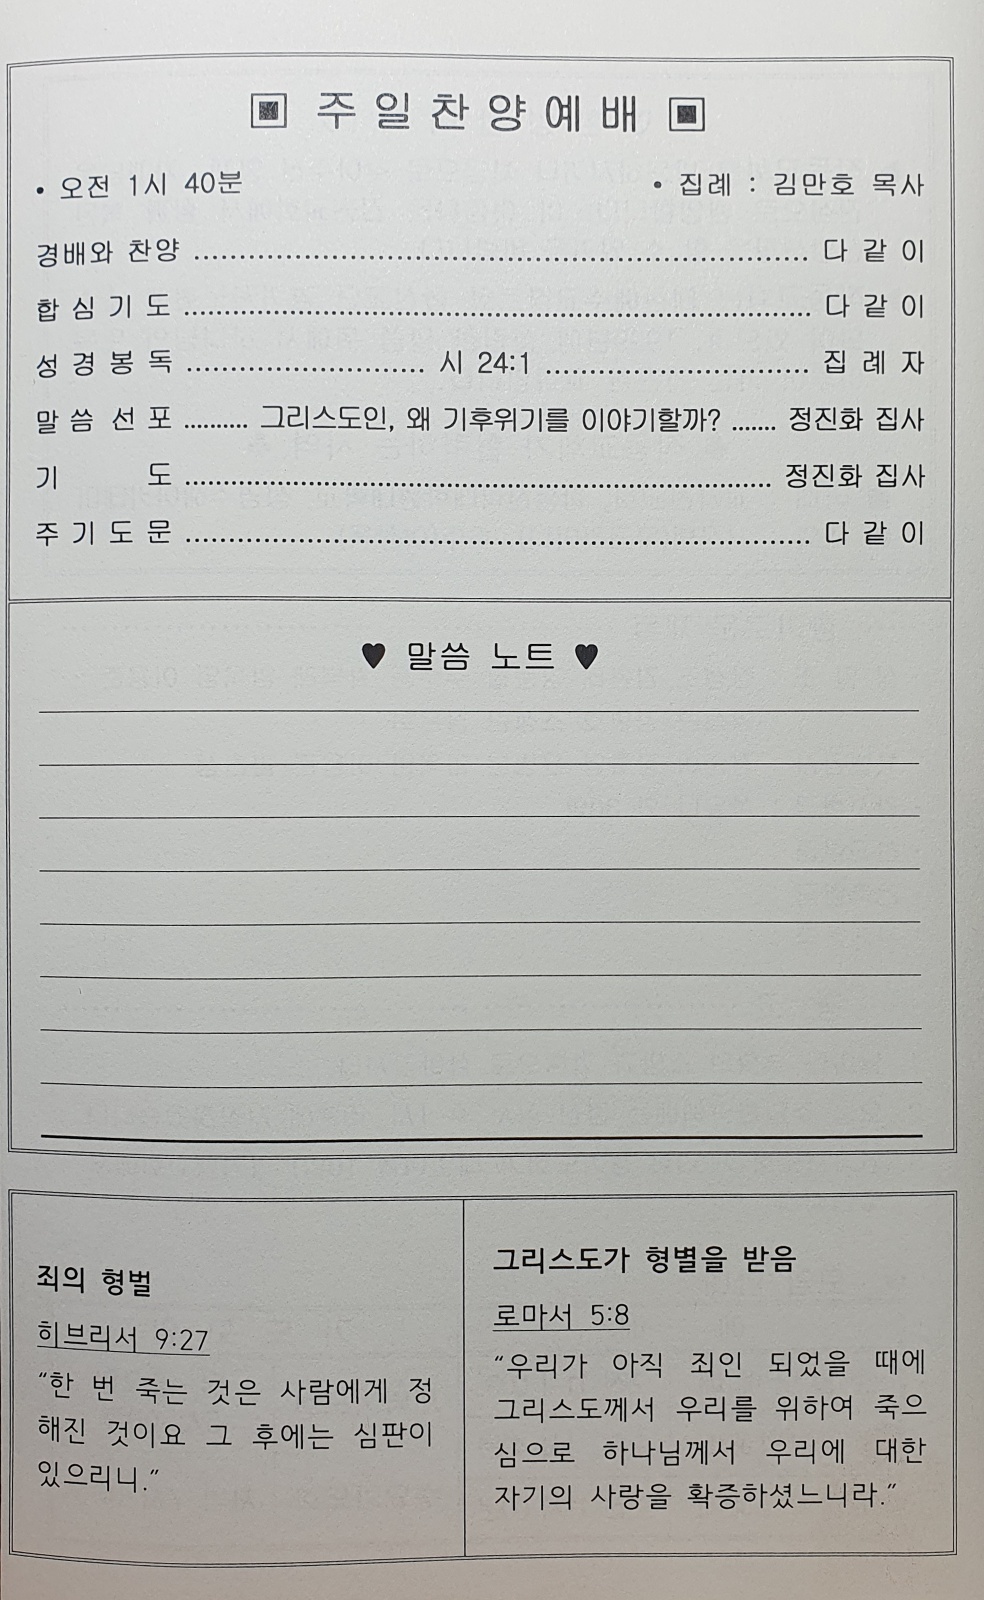 ▣ 주일찬양예배 ▣
• 오전 1시 40분 • 집례 : 김만호 목사
경배와 찬양 ........ 다 같 이
합 심 기 도 ........ 다 같 이
성 경 봉 독 ........ 시 24:1 ........ 집 례 자
말 씀 선 포 ........ 그리스도인, 왜 기후위기를 이야기할까? ....... 정진화 집사
기 도 ........ 정진화 집사
주 기 도 문 ........ 다 같 이
♥ 말씀 노트 ♥
죄의 형벌
히브리서 9:27
“한 번 죽는 것은 사람에게 정
해진 것이요 그 후에는 심판이
있으리니.”
그리스도가 형별을 받음
로마서 5:8
“우리가 아직 죄인 되었을 때에
그리스도께서 우리를 위하여 죽으
심으로 하나님께서 우리에 대한
자기의 사랑을 확증하셨느니라.”